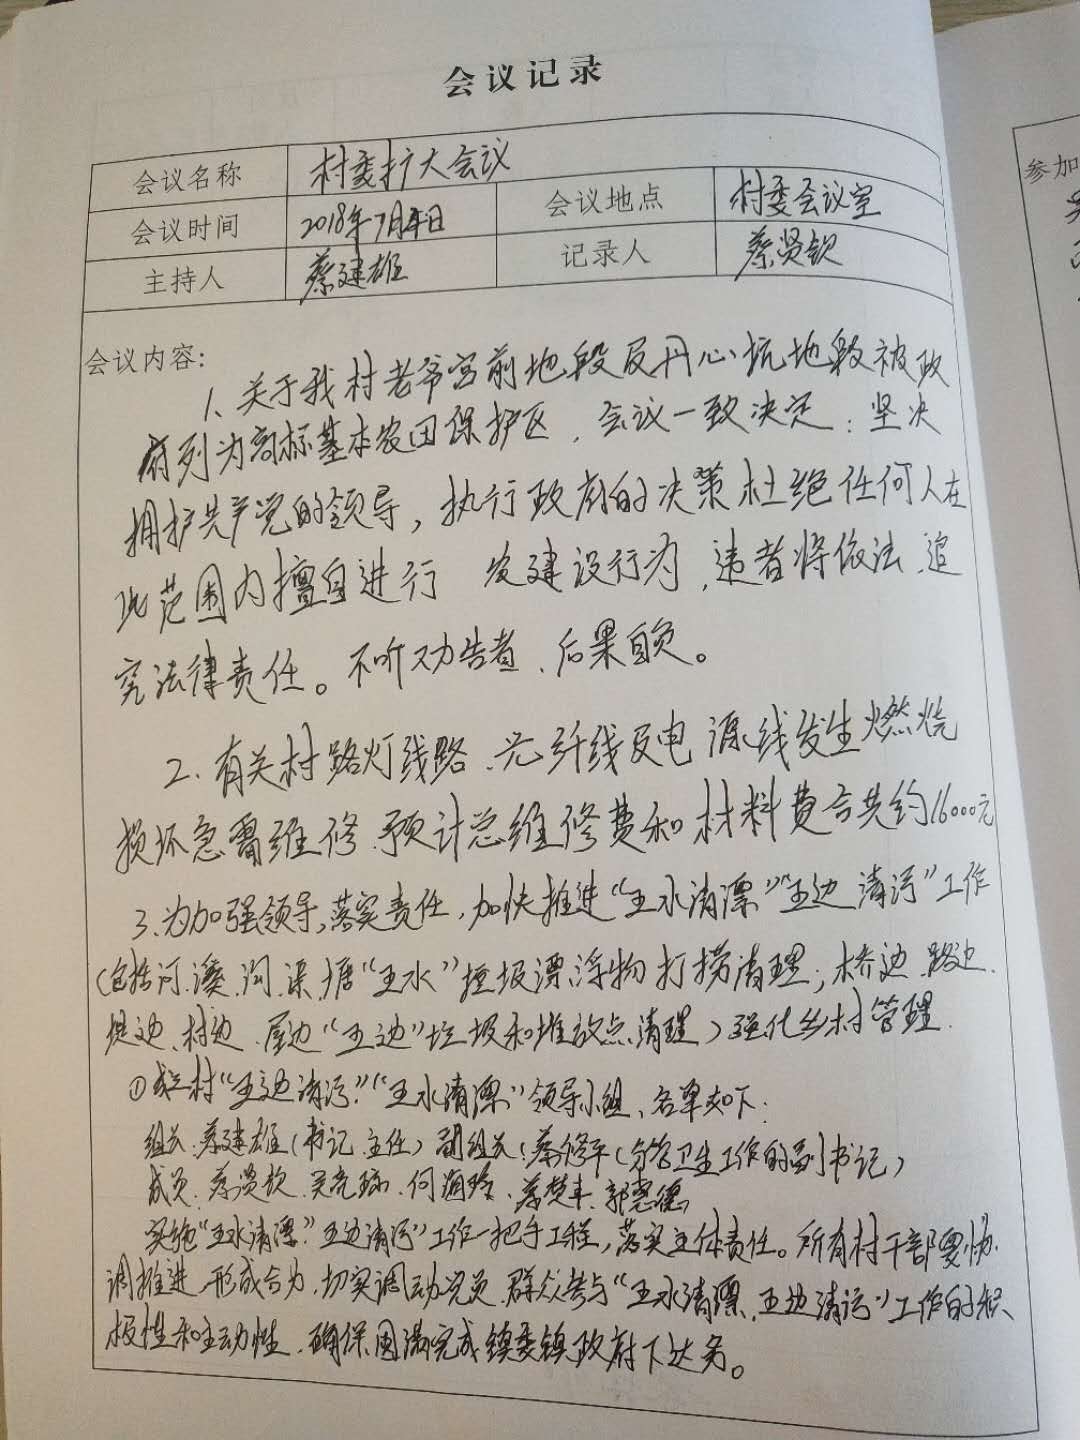 会议记录
会议名称 村委扩大会议
会议时间 2018年7月4日 会议地点 村委会议室
主持人 蔡建雄 记录人 蔡贤钦
会议内容:
1、关于我村老爷宫前地段及丹心坑地段被政
府列为高标基本农田保护区，会议一致决定：坚决
拥护共产党的领导，执行政府的决策杜绝任何人在
此范围内擅自进行 发建设行为，违者将依法追
究法律责任。不听劝告者、后果自负。
2、有关村路灯线路、光纤线及电源线发生燃烧
损坏急需维修、预计总维修费和材料费合共约16000元
3、为加强领导,落实责任,加快推进“五水清漂”“五边清污”工作
(包括河、溪、沟、渠、塘“五水”垃圾漂浮物打捞清理；桥边、路边、
堤边、村边、屋边“五边”垃圾和堆放点清理)强化乡村管理.
①成立村“五边清污”“五水清漂”领导小组、名单如下：
组长:蔡建雄(书记、主任)副组长:蔡修平(分管卫生工作的副书记)
成员:蔡贤钦、何 蔡楚丰、郭惠德
实施“五水清漂”五边清污”工作一把手工程,落实主体责任。所有村干部要协
调推进、形成合力,切实调动党员、群众参与“五水清漂、五边清污”工作的积
极性和主动性、确保圆满完成镇委镇政府下达务。
参加